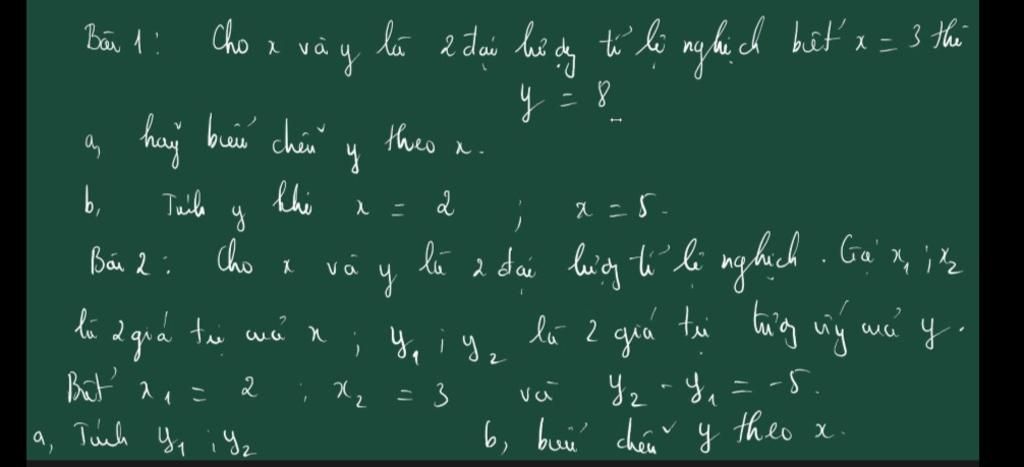 Bài 1: Cho x và y là 2 đại lượng tỉ lệ nghịch biết x = 3 thì
y = 8
a, hãy biểu diễn y theo x.
b, Tính y khi x = 2 ; x = 5.
Bài 2: Cho x và y là 2 đại lượng tỉ lệ nghịch. Gọi x₁ ; x₂
là 2 giá trị của x ; y₁ ; y₂ là 2 giá trị tương ứng của y.
Biết x₁ = 2 ; x₂ = 3 và y₂ - y₁ = -5.
a, Tính y₁ ; y₂ b, biểu diễn y theo x.